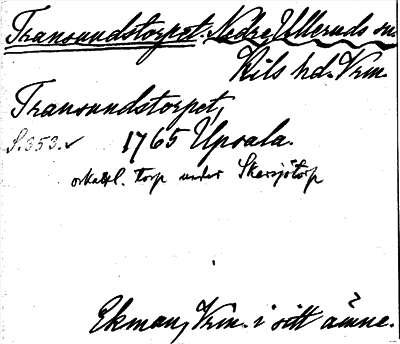 Transundstorpet. Nedre Ulleruds sn.
Kils hd. Vrm.
Transundstorpet,
S. 353. ✓ 1765 Upsala.
torp under Skarsjötorp
Ekman, Vrm. i sitt ämne.